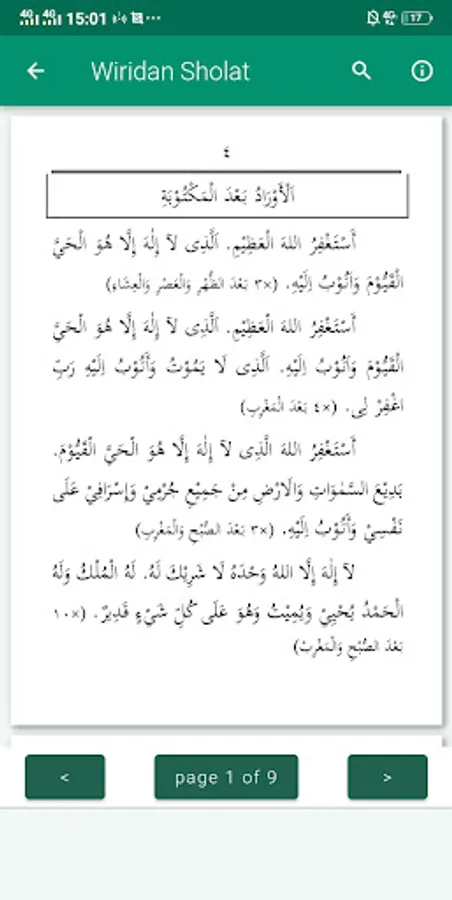 4G 4G 15:01 ... 4G 17
Wiridan Sholat
٤
اَلْأَوْرَادُ بَعْدَ الْمَكْتُوْبَةِ
أَسْتَغْفِرُ اللهَ الْعَظِيْمِ. اَلَّذِى لآ إِلٰهَ إِلَّا هُوَ الْحَيَّ
الْقَيُّوْمَ وَاَتُوْبُ اِلَيْهِ. (×٣ بَعْدَ الظُّهْرِ وَالْعَصْرِ وَالْعِشَاءِ)
أَسْتَغْفِرُ اللهَ الْعَظِيْمِ. اَلَّذِى لآ إِلٰهَ إِلَّا هُوَ الْحَيَّ
الْقَيُّوْمَ وَاَتُوْبُ اِلَيْهِ. اَلَّذِى لَا يَمُوْتُ وَأَتُوْبُ اِلَيْهِ رَبِّ
اغْفِرْ لِى. (×٤ بَعْدَ الْمَغْرِبِ)
أَسْتَغْفِرُ اللهَ الَّذِى لآ إِلٰهَ إِلَّا هُوَ الْحَيَّ الْقَيُّوْمَ.
بَدِيْعَ السَّمٰوَاتِ وَالْاَرْضِ مِنْ جَمِيْعِ جُرْمِيْ وَإِسْرَافِيْ عَلَى
نَفْسِيْ وَأَتُوْبُ اِلَيْهِ. (×٣ بَعْدَ الصُّبْحِ وَالْمَغْرِبِ)
لآ إِلٰهَ إِلَّا اللهُ وَحْدَهُ لَا شَرِيْكَ لَهُ. لَهُ الْمُلْكُ وَلَهُ
الْحَمْدُ يُحْيِيْ وَيُمِيْتُ وَهُوَ عَلَى كُلِّ شَيْءٍ قَدِيْرٌ. (×١٠
بَعْدَ الصُّبْحِ وَالْمَغْرِبْ)
< page 1 of 9 >